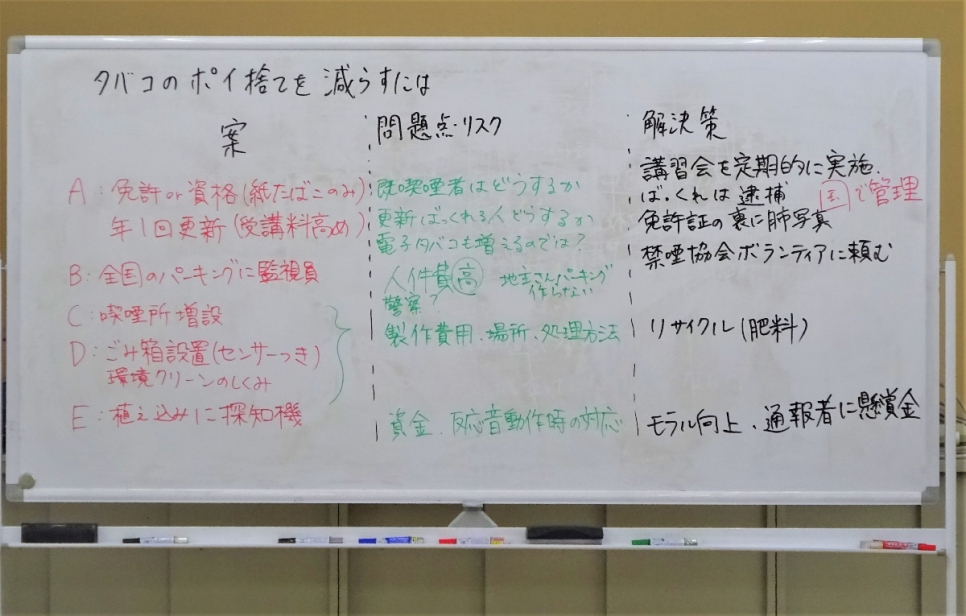 タバコのポイ捨てを減らすには
案
A:免許or資格(紙たばこのみ)
年1回更新(受講料高め)
B:全国のパーキングに監視員
C:喫煙所増設
D:ごみ箱設置(センサーつき)
環境クリーンのしくみ
E:植え込みに探知機
問題点・リスク
既喫煙者はどうするか
更新ばっくれる人どうするか
電子タバコも増えるのでは?
人件費高 地主さんパーキング
作らない
警察?
製作費用、場所、処理方法
資金、反応音動作時の対応
解決策
講習会を定期的に実施、
ばっくれは逮捕 国で管理
免許証の裏に肺写真
禁煙協会ボランティアに頼む
リサイクル(肥料)
モラル向上、通報者に懸賞金